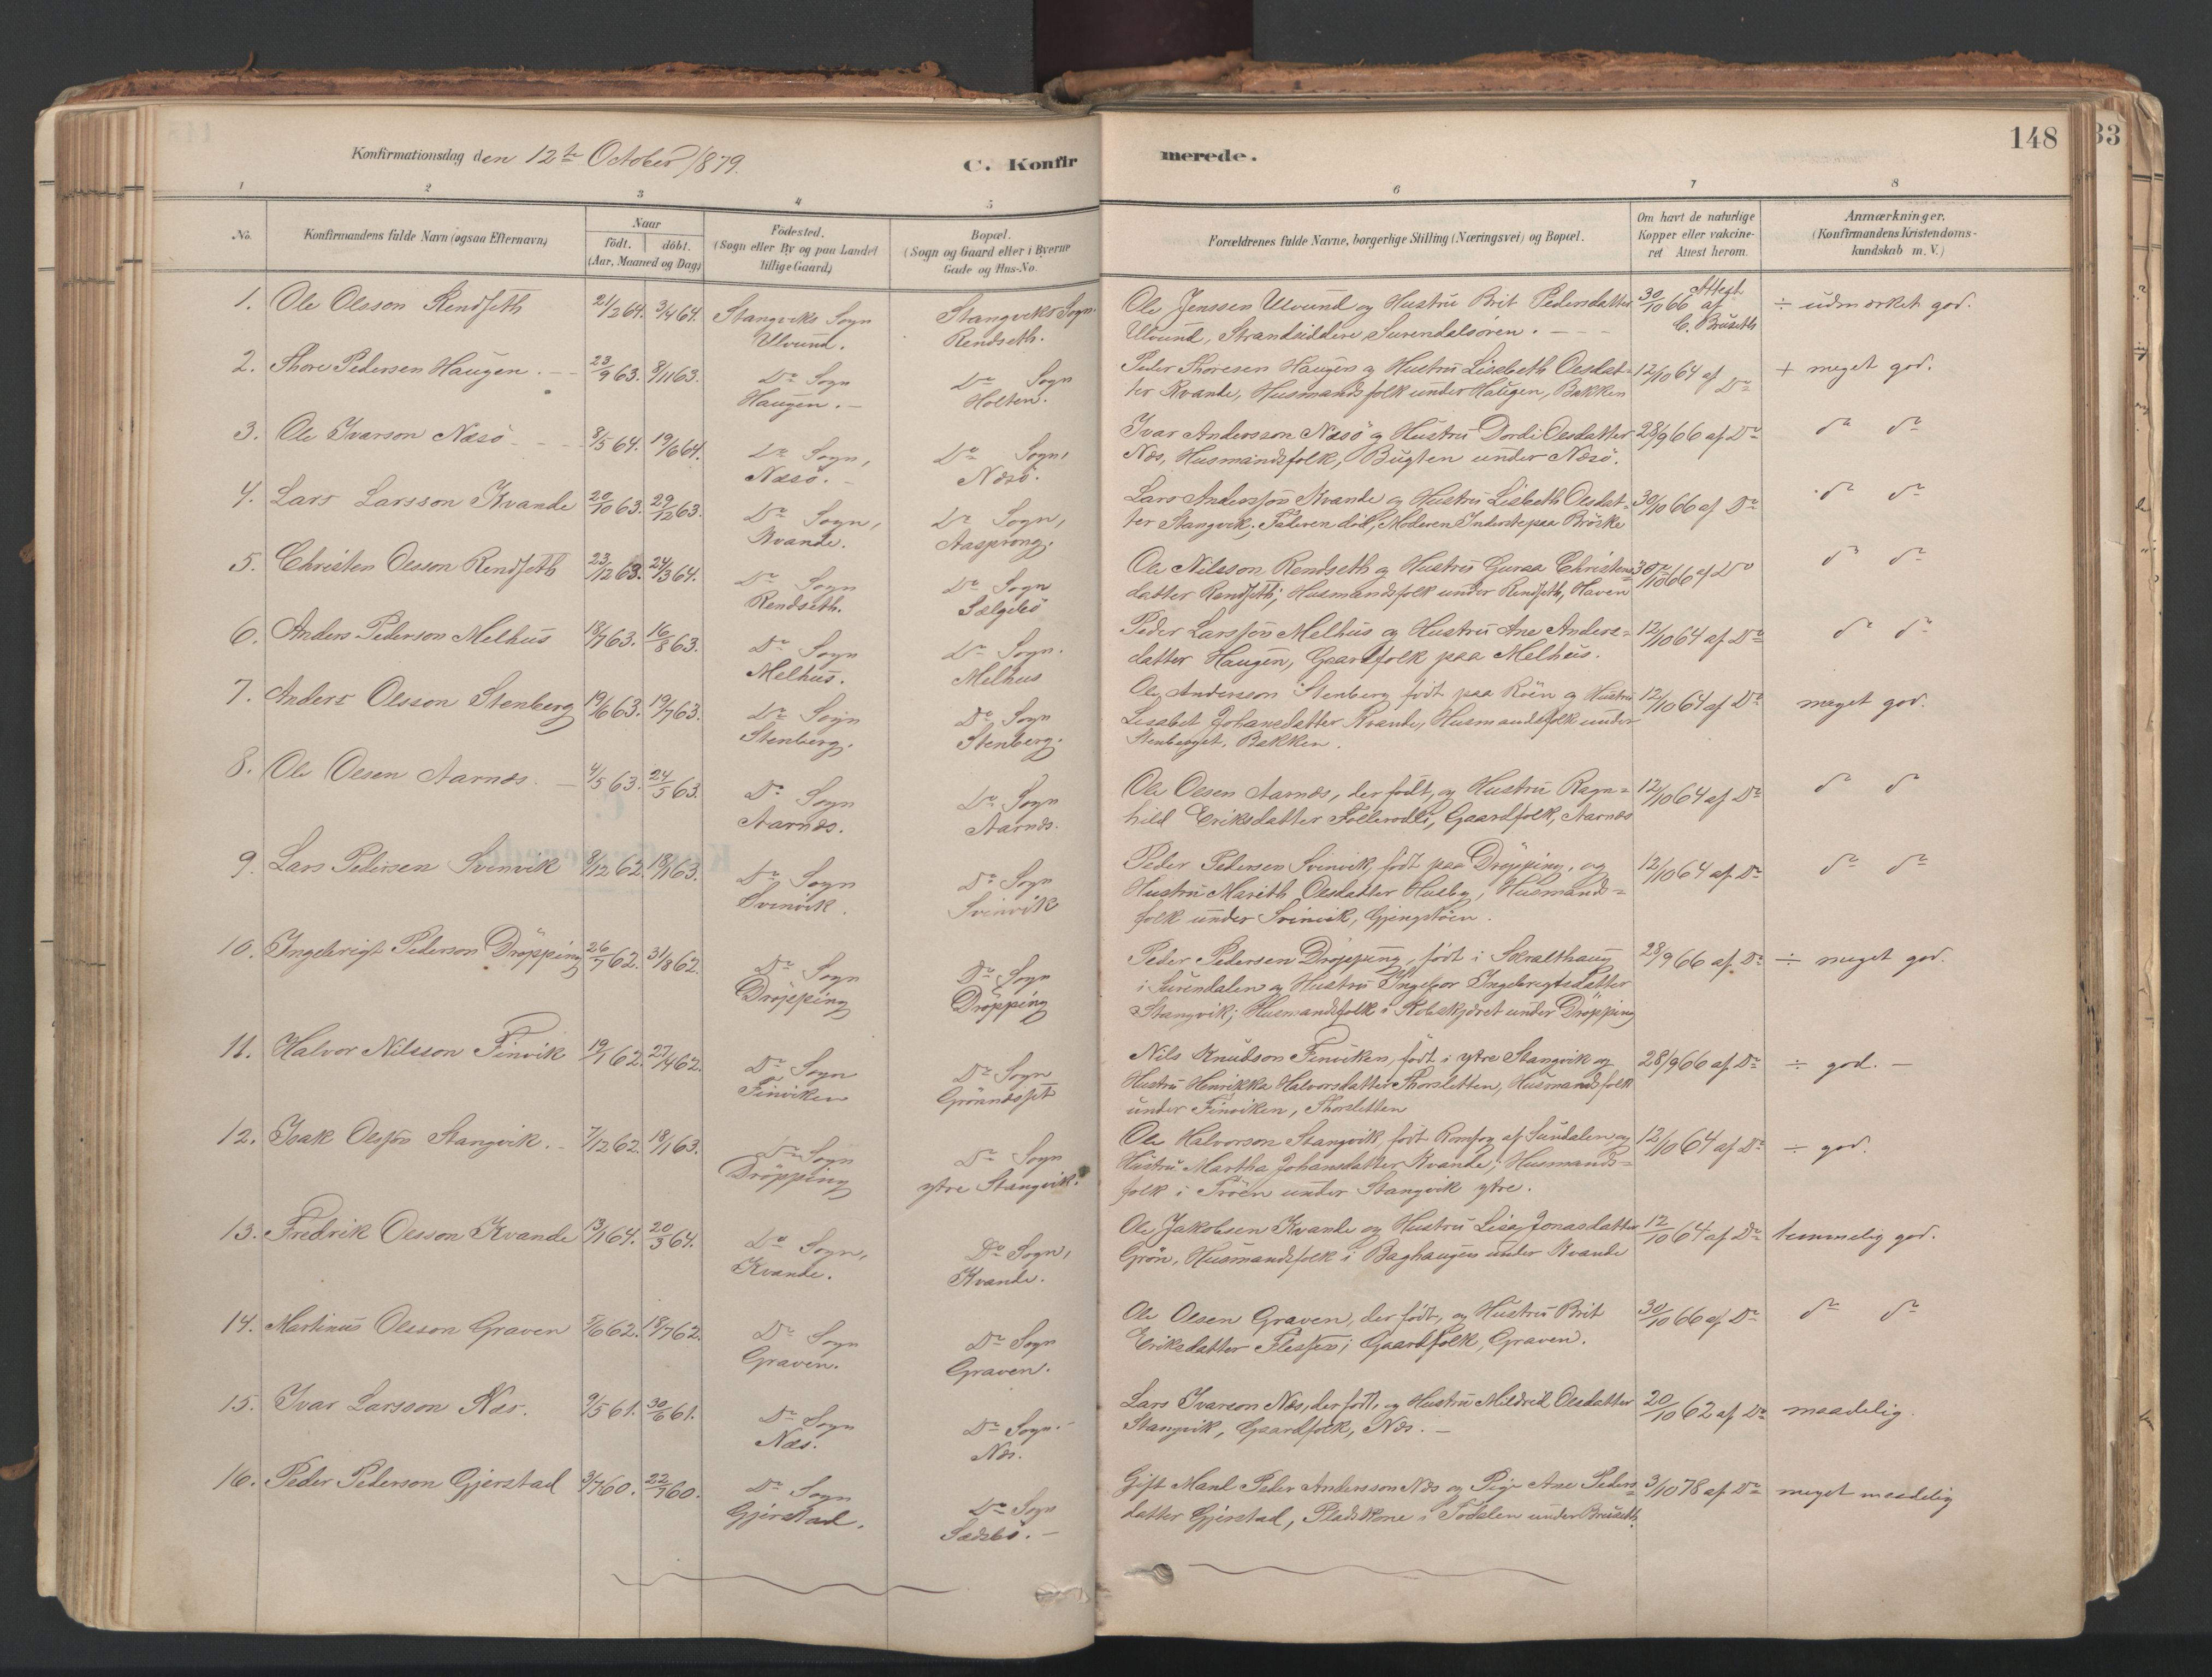 Konfirmationsdag den 12te October 1879.
C. Konfir
merede.
148
33
1 2 3 4 5 6 7 8
No.
Konfirmandens fulde Navn (ogsaa Efternavn)
Naar
født. døbt.
(Aar, Maaned og Dag)
Fødested.
(Sogn eller By og paa Landet
tillige Gaard)
Bopæl.
(Sogn og Gaard eller i Byerne
Gade og Hus-No.
Forældrenes fulde Navne, borgerlige Stilling (Næringsvei) og Bopæl.
Om havt de naturlige
Kopper eller vakcine-
ret Attest herom.
Anmærkninger.
(Konfirmandens Kristendoms-
kundskab m. V.)
1. Ole Olsson Rendseth 21/2 64. 3/4 64. Stangviks Sogn Ulvund. Stangviks Sogn Rendseth.
Ole Jenssen Ulvund og Hustru Brit Pedersdatter
Ulvund, Strandsiddere Surendalsøren. - - -
30/10 66 Attest af C. Bruseth
÷ udmærket god.
2. Thore Pedersen Haugen. - - 23/9 63. 8/11 63. Do Sogn Haugen. - Do Sogn Holten.
Peder Thoresen Haugen og Hustru Lisebeth Olesdat-
ter Kvande, Husmandsfolk under Haugen, Bakken
12/10 64 af Do
+ meget god.
3. Ole Ivarson Næsø - - - 8/5 64. 19/6 64. Do Sogn, Næsø. - Do Sogn, Næsø.
Ivar Andersson Næsø og Hustru Dordi Olesdatter
Næs, Husmandsfolk, Bugten under Næsø.
28/9 66 af Do
do do
4. Lars Larsson Kvande 20/10 63. 29/12 63. Do Sogn, Kvande. Do Sogn, Aasprong.
Lars Andersson Kvande og Hustru Lisbeth Olesdat-
ter Stangvik; Faderen død, Moderen Inderste paa Brøske
30/10 66 af Do
do do
5. Christen Olsson Rendseth 23/12 63. 24/3 64. Do Sogn Rendseth. Do Sogn Sælgebø
Ole Nilsson Rendseth og Hustru Guraa Christens-
datter Rendseth; Husmandsfolk under Rendseth, Haven
30/10 66 af Do
do do
6. Anders Pederson Melhus 18/7 63. 16/8 63. Do Sogn Melhus. Do Sogn. Melhus
Peder Larssøn Melhus og Hustru Ane Anders-
datter Haugen, Gaardfolk paa Melhus.
12/10 64 af Do
do do
7. Anders Olsson Stenberg 19/6 63. 19/7 63. Do Sogn Stenberg. Do Sogn Stenberg.
Ole Andersson Stenberg født paa Røen og Hustru
Lisabet Johansdatter Kvande, Husmandsfolk under
Stenberget, Bakken.
12/10 64 af Do
meget god.
8. Ole Olsen Aarnæs. - 4/5 63. 24/5 63. Do Sogn Aarnæs. Do Sogn Aarnæs.
Ole Olsen Aarnæs, der født, og Hustru Ragn-
hild Eriksdatter Follerodli, Gaardfolk, Aarnæs
12/10 64 af Do
do do
9. Lars Pedersen Svinvik 8/12 62. 18/1 63. Do Sogn Svinvik. Do Sogn Svinvik
Peder Pedersen Svinvik, født paa Drøpping, og
Hustru Mareth Olesdatter Husby; Husmands-
folk under Svinvik, Gjengstøen.
12/10 64 af Do
do do
10. Ingebrigt Pederson Drøpping 26/7 62. 31/8 62. Do Sogn Drøpping Do Sogn Drøpping
Peder Pedersen Drøpping, født i Skralthaug
i Surendalen og Hustru Ingebor Ingebrigtsdatter
Stangvik; Husmandsfolk i Kobskjæret under Drøpping
28/9 66 af Do
÷ meget god.
11. Halvor Nilsson Finvik 19/1 62. 27/4 62. Do Sogn Finviken Do Sogn Grønnæsset
Nils Knudson Finviken, født i ytre Stangvik og
Hustru Henrikka Halvorsdatter Thorsletten, Husmandsfolk
under Finviken, Thorsletten
28/9 66 af Do
÷ god. -
12. Isak Olssøn Stangvik. - 7/12 62. 18/1 63. Do Sogn Drøpping Do Sogn ytre Stangvik.
Ole Halvorson Stangvik, født Romfog af Sundalen og
Hustru Martha Johansdatter Kvande; Husmands-
folk i Trøen under Stangvik ytre.
12/10 64 af Do
÷ god.
13. Fredrik Olsson Kvande 13/1 64. 20/3 64. Do Sogn, Kvande. Do Sogn, Kvande.
Ole Jakobsen Kvande og Hustru Lisa Jonasdatter
Grøn, Husmandsfolk i Baghaugen under Kvande
12/10 64 af Do
temmelig god.
14. Martinus Olsson Graven 5/6 62. 18/7 62. Do Sogn Graven. Do Sogn Graven.
Ole Olsen Graven, der født, og Hustru Brit
Eriksdatter Flessen; Gaardfolk, Graven.
30/10 66 af Do
do do
15. Ivar Larsson Næs. 9/5 61. 30/6 61. Do Sogn Næs. Do Sogn. - Næs.
Lars Ivarson Næs, der født, og Hustru Mildrid Olesdatter
Stangvik, Gaardfolk, Næs. -
20/10 62 af Do
maadelig.
16. Peder Pederson Gjerstad 3/7 60. 22/7 60. Do Sogn Gjerstad. Do Sogn Sædsbø. -
Gift Mand Peder Andersson Næs og Pige Ane Peders-
datter Gjerstad, Pladskone i Todalen under Bruseth.
3/10 78 af Do
meget maadelig